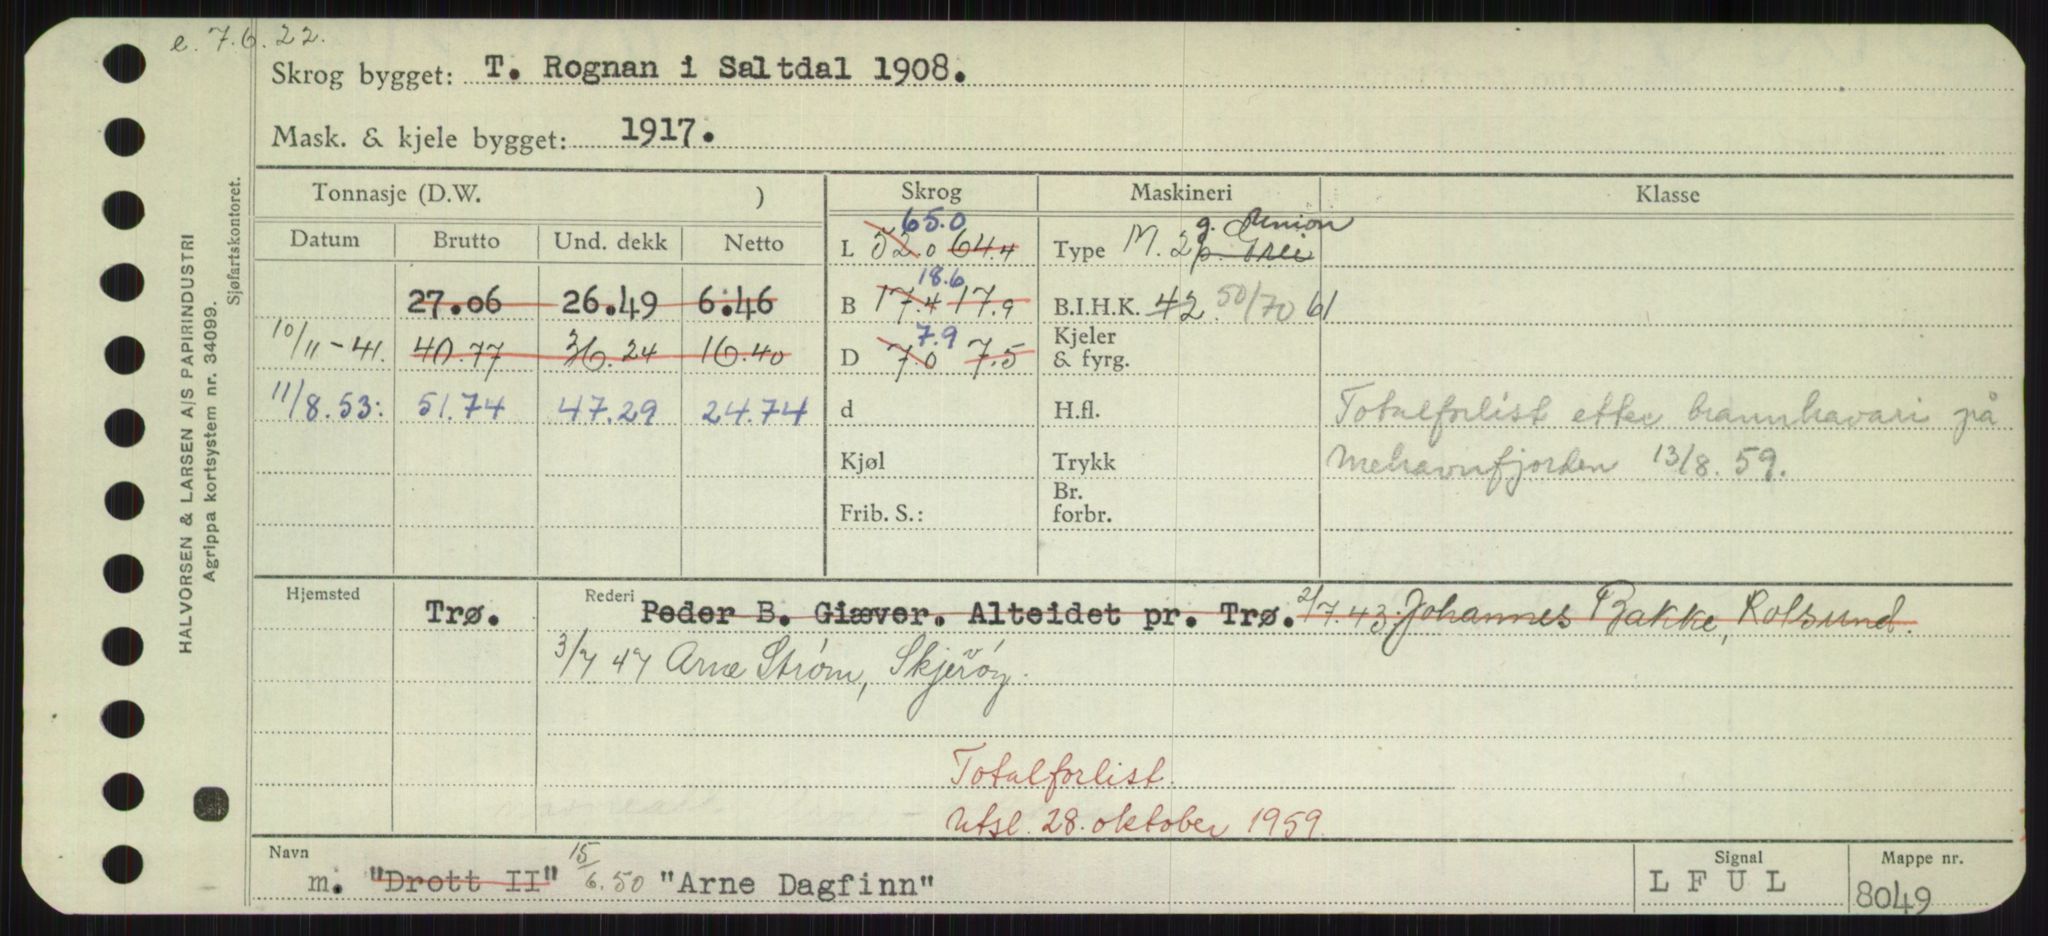 e. 7.6.22.
Skrog bygget: T. Rognan i Saltdal 1908.
Mask. & kjele bygget: 1917.
HALVORSEN & LARSEN A/S PAPIRINDUSTRI
Agrippa kortsystem nr. 34099.
Sjøfartskontoret.
Tonnasje (D.W. ) Skrog Maskineri Klasse
Datum Brutto Und. dekk Netto
27.06 26.49 6.46
10/11-41. 40.77 36.24 16.40
11/8.53: 51.74 47.29 24.74
65.0
L 52.0 64.4
18.6
B 17.4 17.9
7.9
D 7.0 7.5
d
Kjøl
Frib. S.:
g. Union
Type M. 2
B.I.H.K. 42 50/70 bl
Kjeler
& fyrg.
H.fl.
Trykk
Br.
forbr.
Totalforlist etter brannhavari på
Mehavnfjorden 13/8.59.
Hjemsted Trø.
Rederi Peder B. Giæver. Alteidet pr. Trø. 2/7.43. Johannes Bakke, Rolsund.
3/7 47 Arne Strøm, Skjervöy.
Totalforlist.
Utsl. 28. oktober 1959.
Navn Signal Mappe nr.
m. "Drott II" 15/6.50 "Arne Dagfinn" LFUL 8049